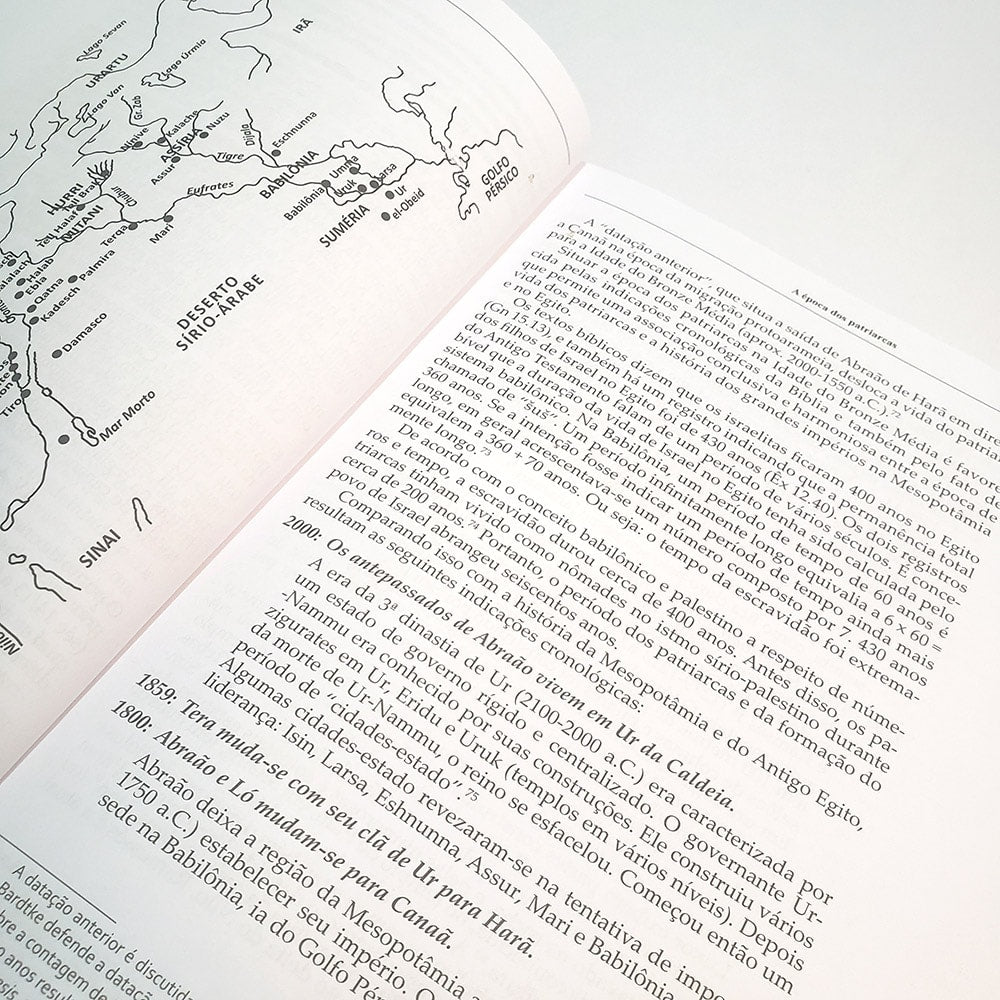 Lago Sevan
IRÃ
URARTU
Lago Úrmia
Lago Van
Gr. Zab
Kalache
Nuzu
Nínive
ASSÍRIA
Assur
Tigre
Dijala
Eschnunna
HURRI
Tell Halaf
MITANI
Chubur
Eufrates
BABILÔNIA
Babilônia
Umma
Uruk
Larsa
Ur
el-Obeid
SUMÉRIA
GOLFO
PÉRSICO
Terqa
Mari
Halab
Ebla
Palmira
Qatna
Kadesch
Damasco
DESERTO
SÍRIO-ÁRABE
Tiro
Mar Morto
SINAI
A época dos patriarcas
A “datação anterior”, que situa a saída de Abraão de Harã em dire
a Canaã na época da migração protoarameia, desloca a vida do patriar
para a Idade do Bronze Média (aprox. 2000-1550 a.C.).
Situar a época dos patriarcas na Idade do Bronze Média é favore
cida pelas indicações cronológicas da Bíblia e também pelo fato de
que permite uma associação conclusiva e harmoniosa entre a época de
vida dos patriarcas e a história dos grandes impérios na Mesopotâmia
e no Egito.
Os textos bíblicos dizem que os israelitas ficaram 400 anos no Egito
(Gn 15.13), e também há um registro indicando que a permanência total
dos filhos de Israel no Egito foi de 430 anos (Êx 12.40). Os dois registros
do Antigo Testamento falam de um período de vários séculos. É conce-
bível que a duração da vida de Israel no Egito tenha sido calculada pelo
sistema babilônico. Na Babilônia, um período de tempo de 60 anos é
chamado de “šuš”. Um período infinitamente longo equivalia a 6 x 60 =
360 anos. Se a intenção fosse indicar um período de tempo ainda mais
longo, em geral acrescentava-se um número composto por 7. 430 anos
equivalem a 360 + 70 anos. Ou seja: o tempo da escravidão foi extrema-
mente longo.⁷³
De acordo com o conceito babilônico e palestino a respeito de núme-
ros e tempo, a escravidão durou cerca de 400 anos. Antes disso, os pa-
triarcas tinham vivido como nômades no istmo sírio-palestino durante
cerca de 200 anos.⁷⁴ Portanto, o período dos patriarcas e da formação do
povo de Israel abrangeu seiscentos anos.
Comparando isso com a história da Mesopotâmia e do Antigo Egito,
resultam as seguintes indicações cronológicas:
2000: Os antepassados de Abraão vivem em Ur da Caldeia.
A era da 3ª dinastia de Ur (2100-2000 a.C.) era caracterizada por
um estado de governo rígido e centralizado. O governante Ur-
-Nammu era conhecido por suas construções. Ele construiu vários
zigurates em Ur, Eridu e Uruk (templos em vários níveis). Depois
da morte de Ur-Nammu, o reino se esfacelou. Começou então um
período de “cidades-estado”.⁷⁵
Algumas cidades-estado revezaram-se na tentativa de impo
liderança: Isin, Larsa, Eshnunna, Assur, Mari e Babilônia
1859: Tera muda-se com seu clã de Ur para Harã.
1800: Abraão e Ló mudam-se para Canaã.
Abraão deixa a região da Mesopotâmia a
1750 a.C.) estabelecer seu império. O
sede na Babilônia, ia do Golfo Pér
A datação anterior é discutida
Bardtke defende a datação
bre a contagem de
anos resul